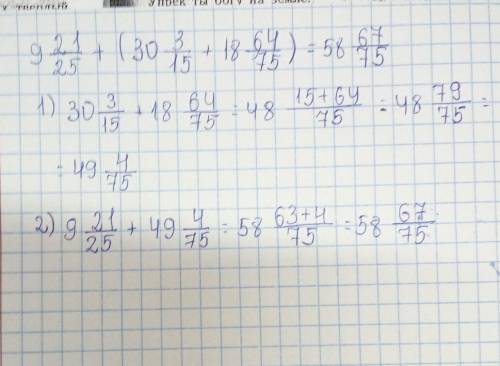 упрек ты богу на земле.
9 21/25 + (30 3/15 + 18 64/75) = 58 67/75
1) 30 3/15 + 18 64/75 = 48 15+64/75 = 48 79/75 =
= 49 4/75
2) 9 21/25 + 49 4/75 = 58 63+4/75 = 58 67/75